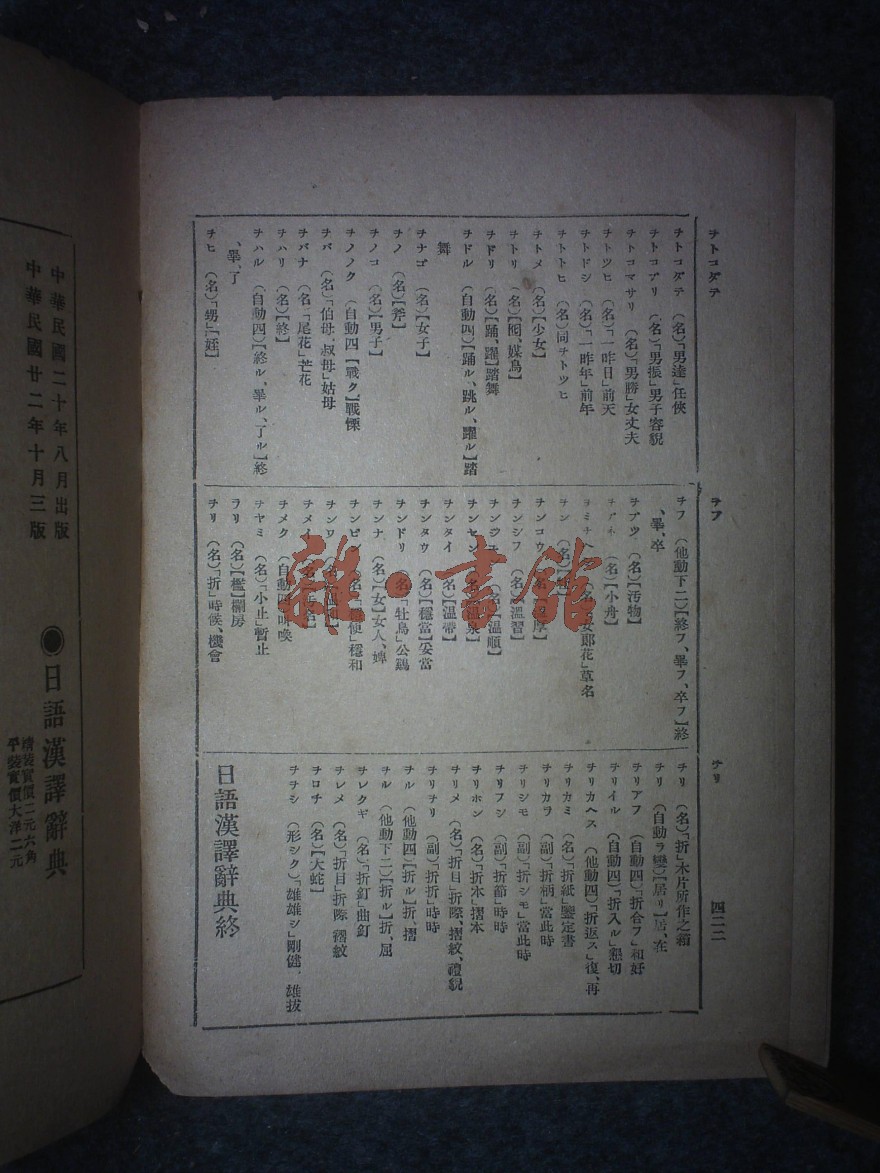 ヲトコダテ
ヲフ
ヲリ
四二二
ヲトコダテ (名)「男達」任俠
ヲトコブリ (名)「男振」男子容貌
ヲトコマサリ (名)「男勝」女丈夫
ヲトツヒ (名)「一昨日」前天
ヲトドシ (名)「一昨年」前年
ヲトトヒ (名)同ヲトツヒ
ヲトメ (名)【少女】
ヲトリ (名)【囮、媒鳥】
ヲドリ (名)【踊、躍】踏舞
ヲドル (自動四)【踊ル、跳ル、躍ル】踏
舞
ヲナゴ (名)【女子】
ヲノ (名)【斧】
ヲノコ (名)【男子】
ヲノノク (自動四)【戰ク】戰慄
ヲバ (名)「伯母、叔母」姑母
ヲバナ (名)「尾花」芒花
ヲハリ (名)【終】
ヲハル (自動四)【終ル、畢ル、了ル】終
、畢、了
ヲヒ (名)「甥」【姪】
ヲフ (他動下二)【終フ、畢フ、卒フ】終
、畢、卒
ヲブツ (名)【汚物】
ヲブネ (名)【小舟】
ヲミナ (名)女郎花」草名
ヲン (名)
ヲンコウ (名) 厚】
ヲンシフ (名)【溫習】
ヲンジュン (名)【溫順】
ヲンセン (名)【溫泉】
ヲンタイ (名)【溫帶】
ヲンタウ (名)【穩當】妥當
ヲンドリ (名)「牡鳥」公鷄
ヲンナ (名)【女】女人、婢
ヲンビン (名)【穩便】穩和
ヲンワ (名)
ヲメイ (名)
ヲメク (自動四) 叫喚
ヲヤミ (名)「小止」暫止
ヲリ (名)【檻】闌房
ヲリ (名)「折」時候、機會
ヲリ (名)「折」木片所作之箱
ヲリ (自動ラ變)【居リ】居、在
ヲリアフ (自動四)「折合フ」和好
ヲリイル (自動四)「折入ル」懇切
ヲリカヘス (他動四)「折返ス」復、再
ヲリカミ (名)「折紙」鑒定書
ヲリカラ (副)「折柄」當此時
ヲリシモ (副)「折シモ」當此時
ヲリフシ (副)「折節」時時
ヲリホン (名)「折本」摺本
ヲリメ (名)「折目」折際、摺紋、禮貌
ヲリヲリ (副)「折折」時時
ヲル (他動四)【折ル】折、摺
ヲル (他動下二)【折ル】折、屈
ヲレクギ (名)「折釘」曲釘
ヲレメ (名)「折目」折際、褶紋
ヲロチ (名)【大蛇】
ヲヲシ (形シク)「雄雄シ」剛健、雄拔
日語漢譯辭典終
中華民國二十年八月出版
中華民國廿二年十月三版
◉日語漢譯辭典
精裝實價二元六角
平裝實價大洋二元
雜·書館